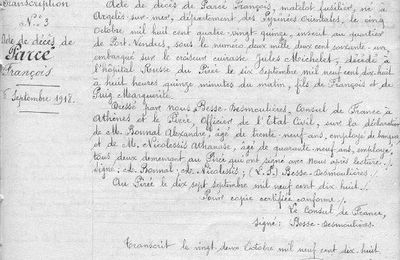 Transcription
N° 3
Acte de décès de
Parcé
François
6 Septembre 1918.
Acte de décès de Parcé François, matelot fusilier, né à
Argelès-sur-mer, département des Pyrénées Orientales, le cinq
Octobre mil huit cent quatre-vingt-quinze, inscrit au quartier
de Port-Vendres, sous le numéro deux mille deux cent soixante-un
embarqué sur le croiseur cuirassé Jules Michelet, décédé à
l'hôpital Russe du Pirée le six septembre mil neuf cent dix-huit
à huit heures quinze minutes du matin, fils de François et de
Puig Marguerite.
Dressé par nous Besse-Desmoulières, Consul de France à
Athènes et le Pirée, Officier de l'État Civil, sur la déclaration
de M. Bonnal Alexandre, âgé de trente-neuf ans, employé de banque
et de M. Nicolessis Athanase, âgé de quarante-neuf ans, employé,
tous deux demeurant au Pirée qui ont signé avec Nous après lecture./.
Signé: A. Bonnal; A. Nicolessis; (L.S.) Besse-Desmoulières./.
Au Pirée le dix sept septembre mil neuf cent dix huit./.
Pour copie certifiée conforme./.
Le Consul de France,
Signé: Besse-Desmoulières.
Transcrit le vingt-deux Octobre mil neuf cent dix-huit